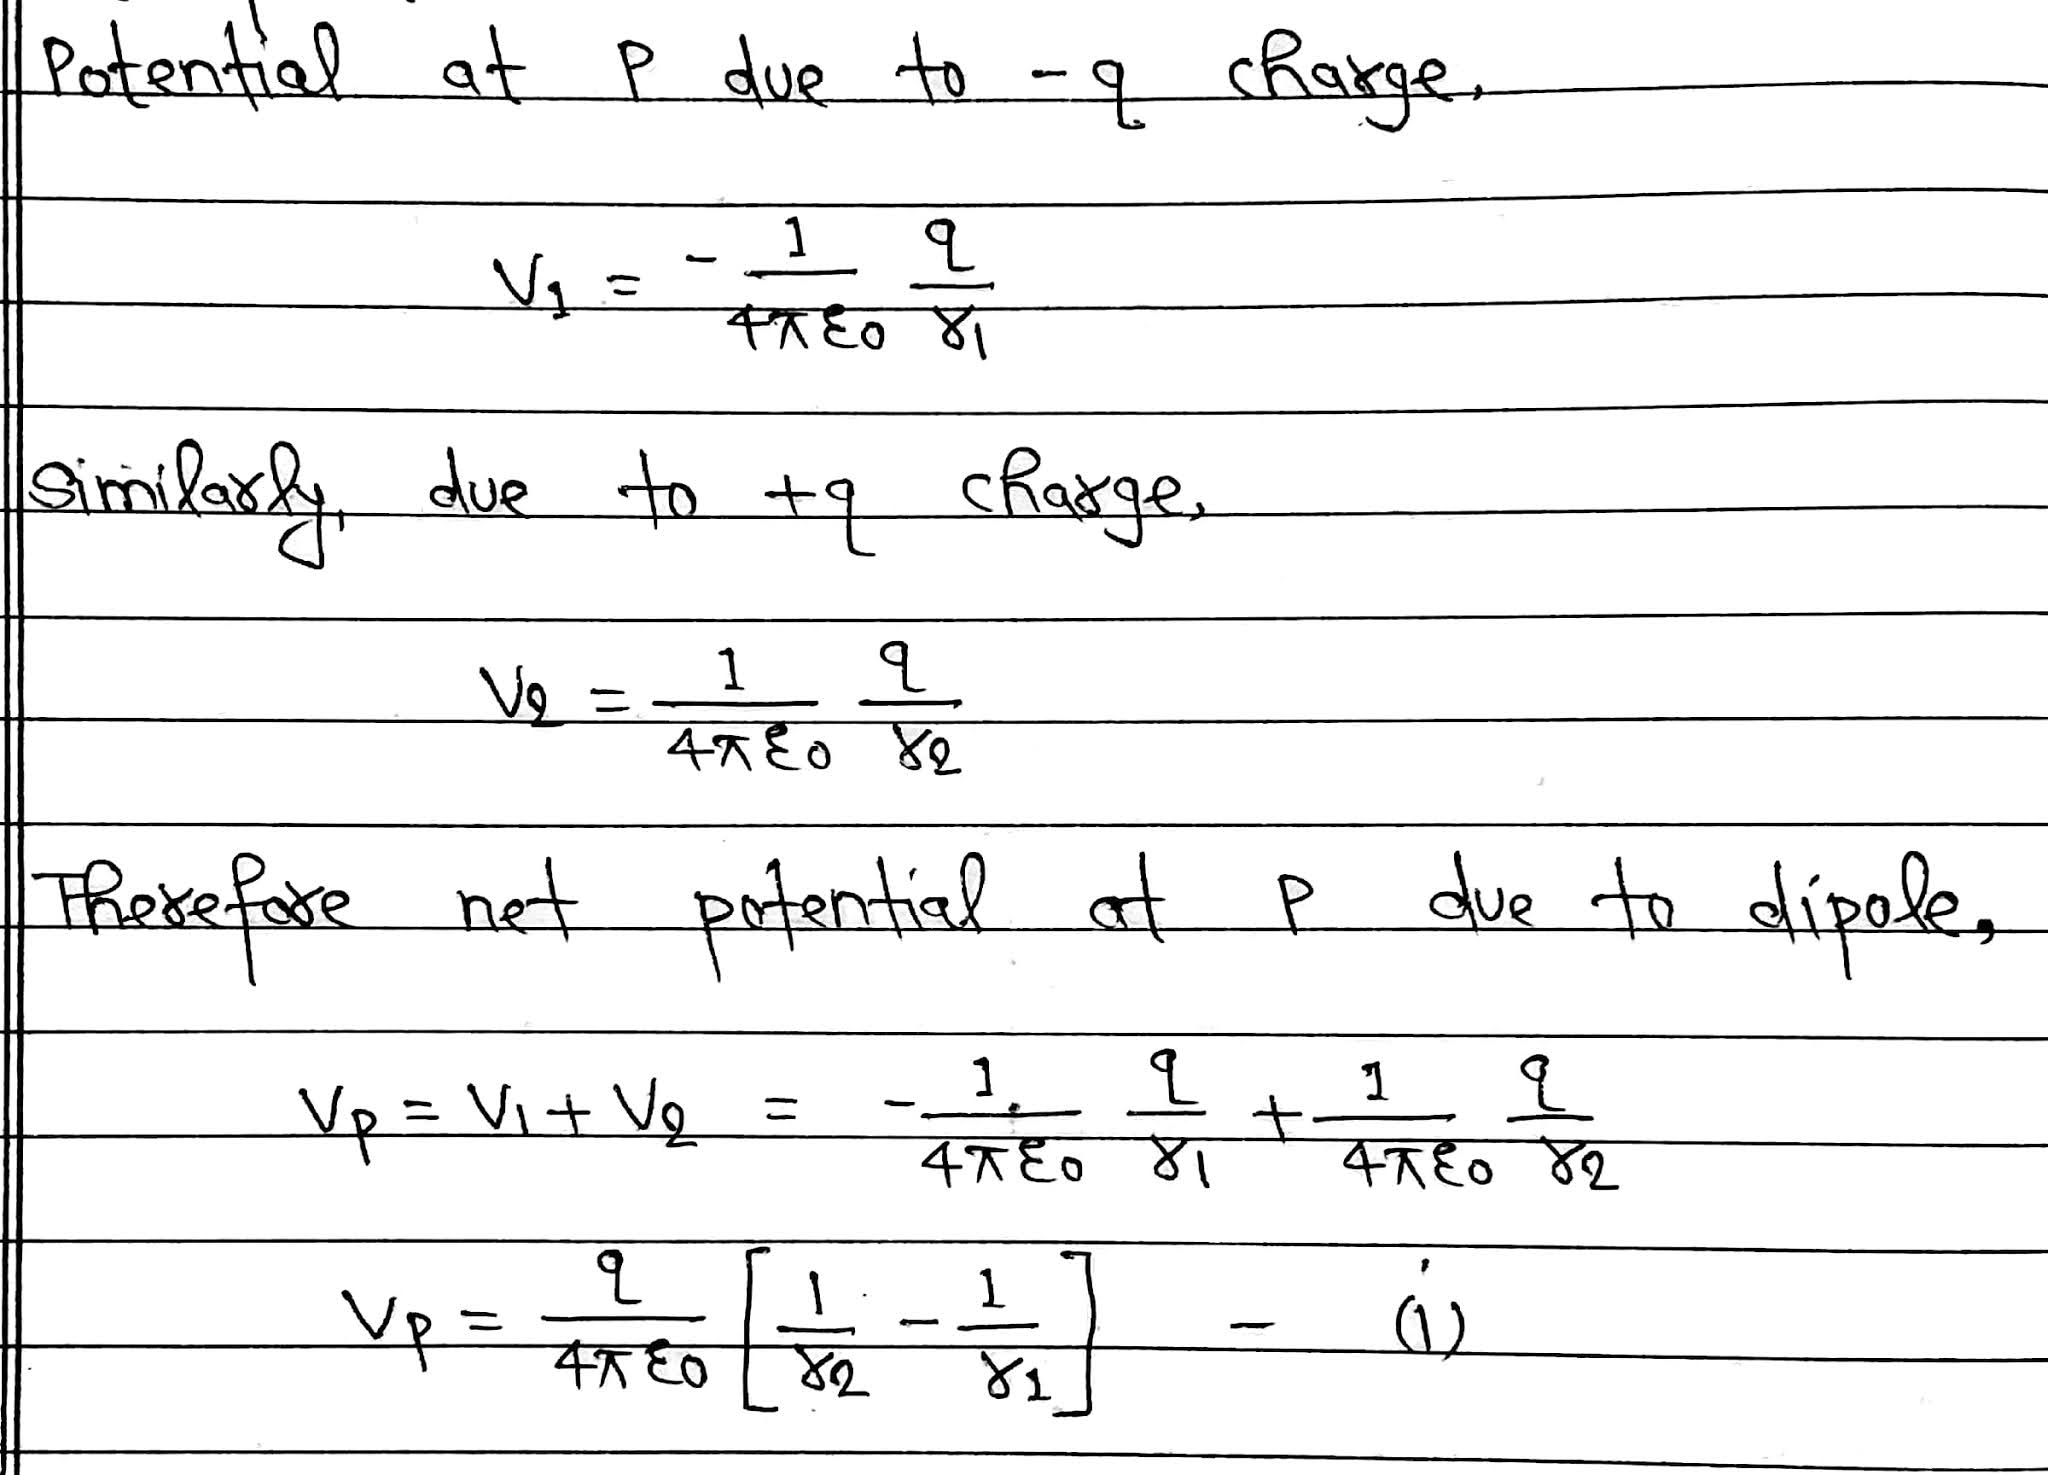 Potential at P due to -q charge,
V₁ = - 1/4πε₀ q/r₁
Similarly, due to +q charge,
V₂ = 1/4πε₀ q/r₂
Therefore net potential at P due to dipole,
Vp = V₁ + V₂ = - 1/4πε₀ q/r₁ + 1/4πε₀ q/r₂
Vp = q/4πε₀ [1/r₂ - 1/r₁] - (i)